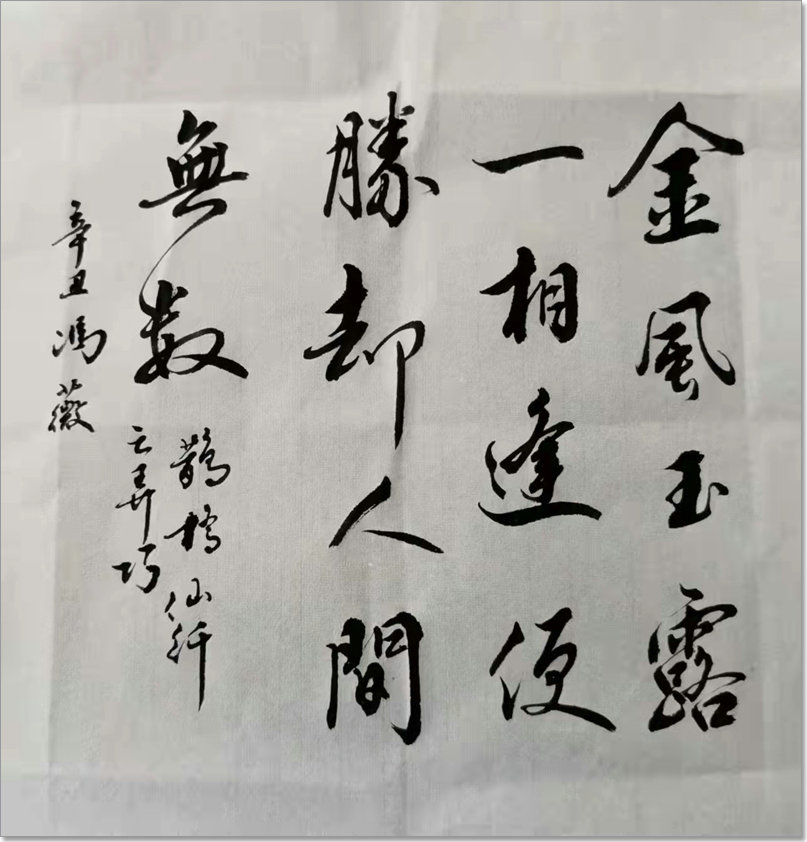 金風玉露
一相逢便
勝却人間
無数
鵲橋仙纤
云弄巧
辛丑馮薇